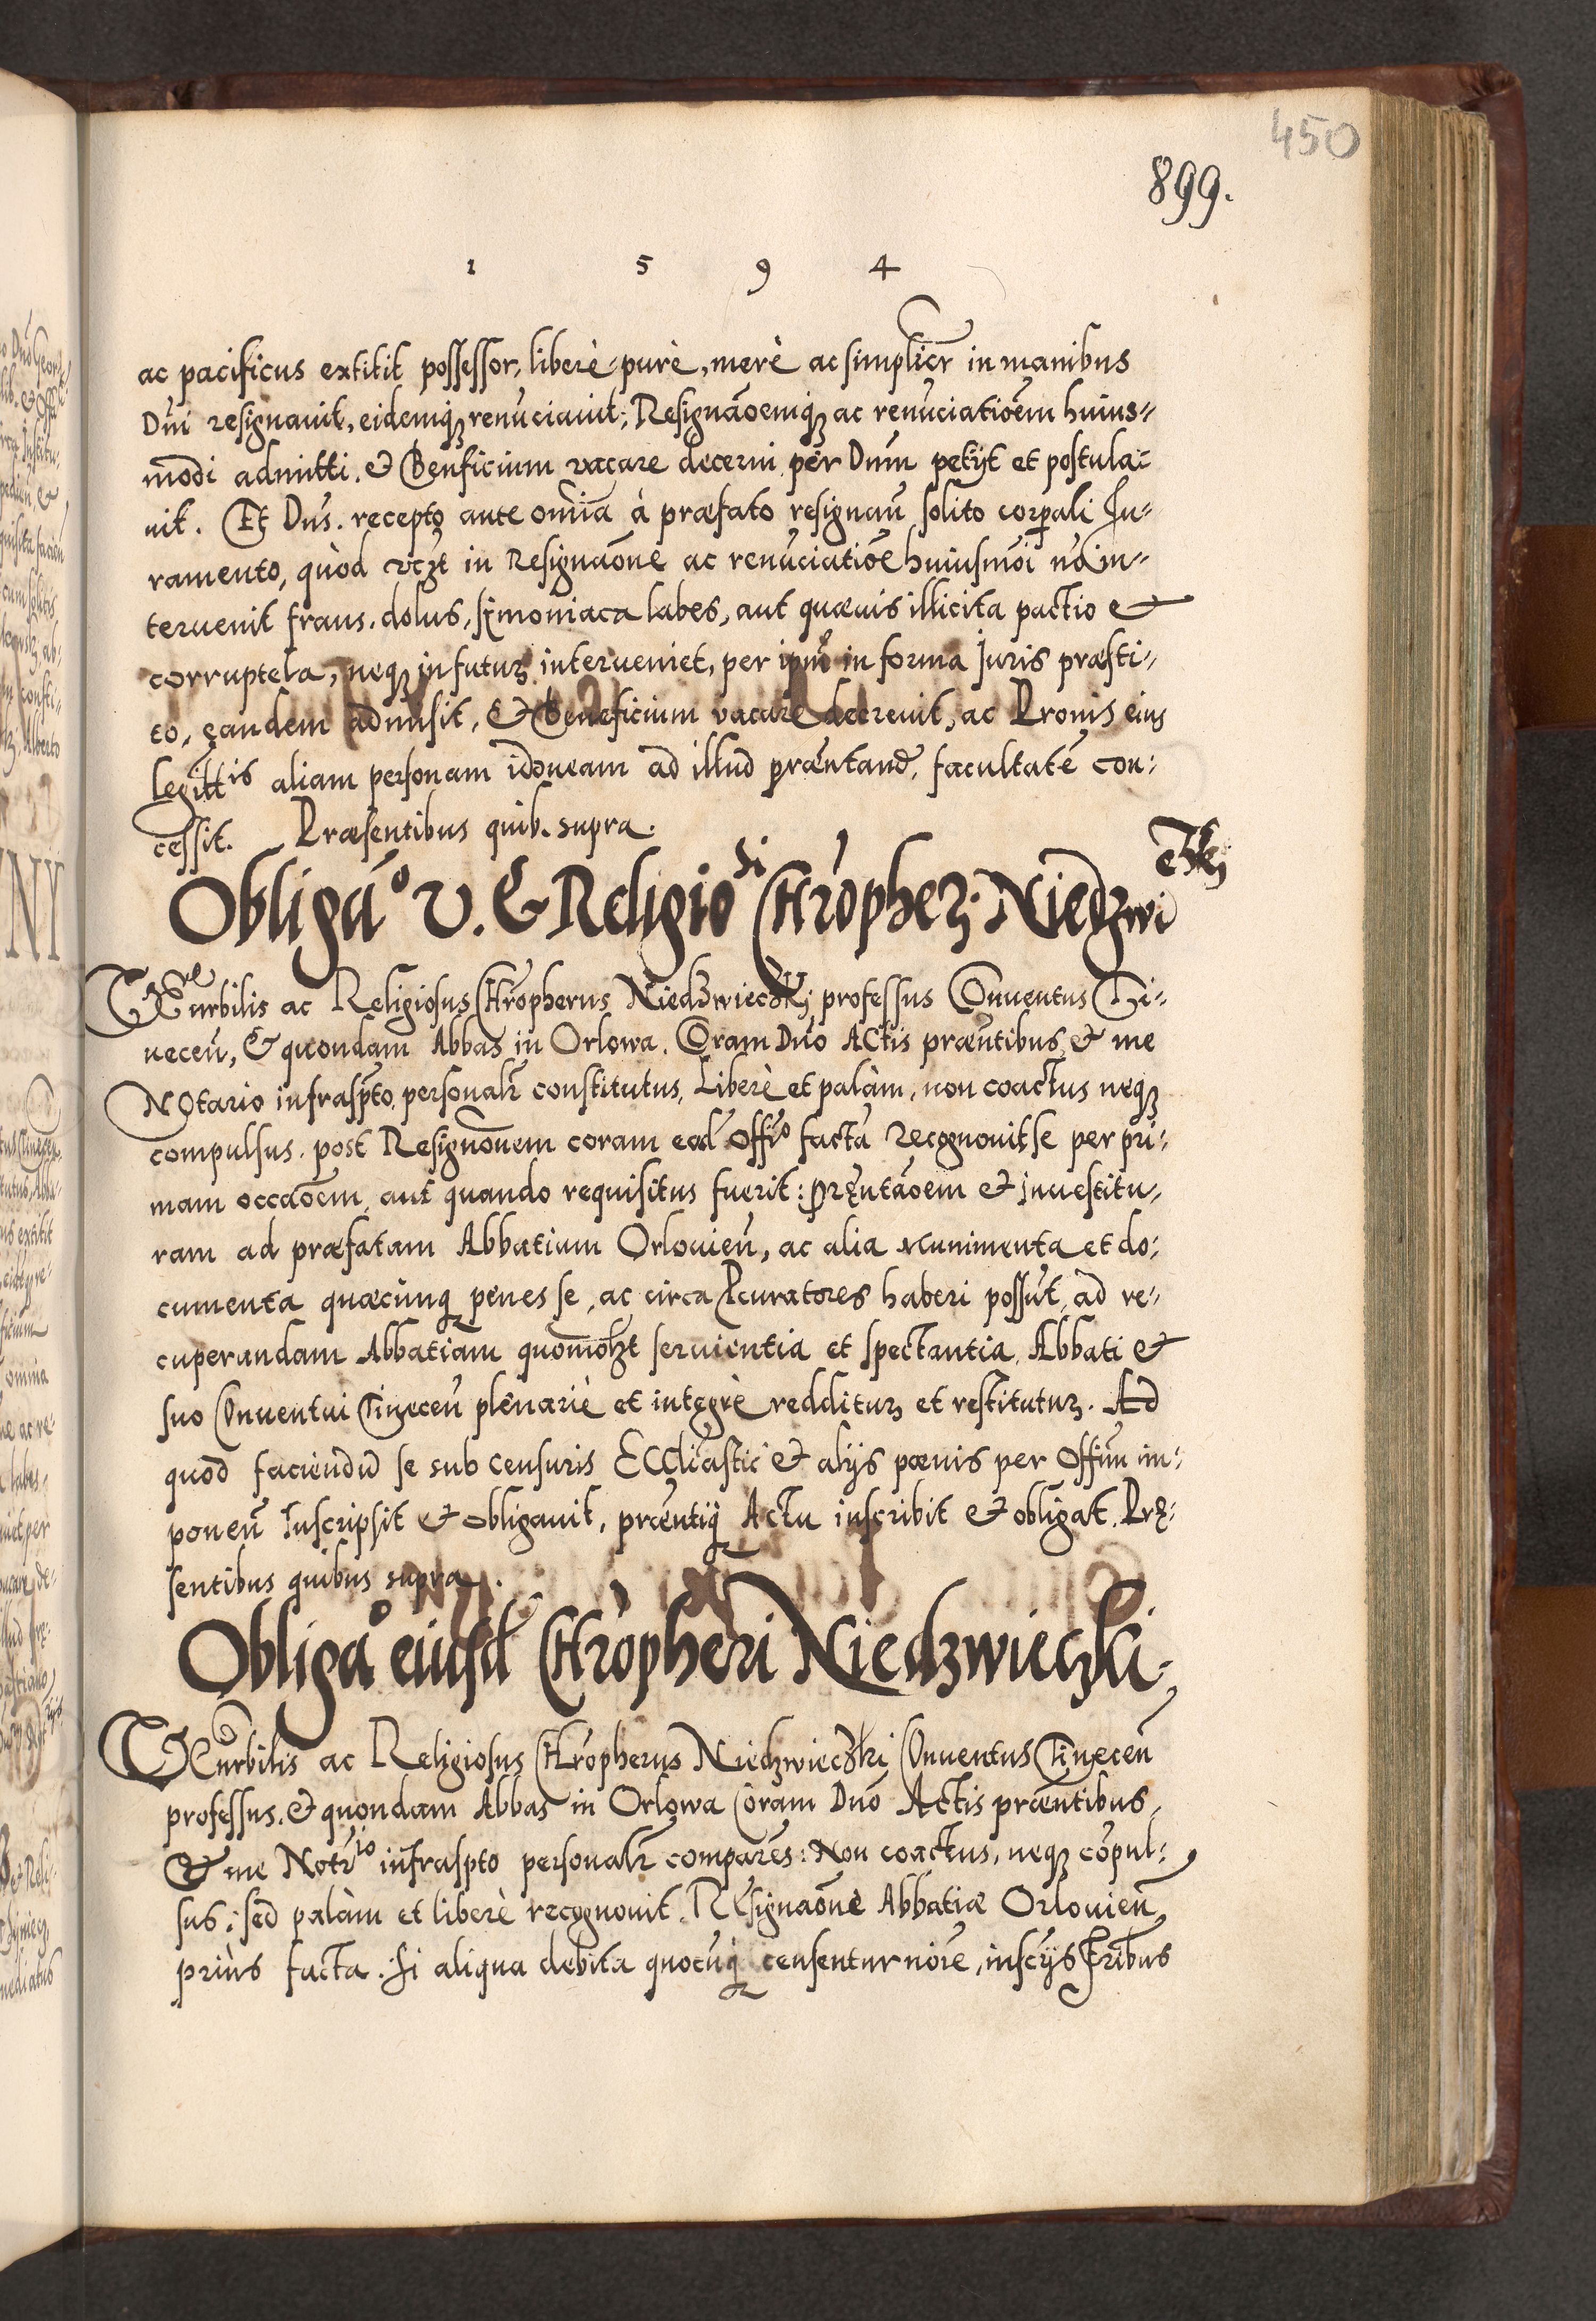 450
899.
1 5 9 4
ac pacificus extitit possessor, liberè, purè, merè ac simplicr in manibus
Dni resignauit, eidemq; renunciauit; Resignãoemq; ac renunciatioem huius=
modi admitti. & Benficium vacare decerni per Dnm petijt et postula=
uit. Et Dns. recepto ante omia à præfato resignan̄ solito corpali Ju=
ramento, quòd vczt in Resignaõne ac renunciatiõe huiusmõi nõ in=
teruenit fraus, dolus, simoniaca labes, aut quæuis illicita pactio &
corruptela, neq; in futuꝝ interueniet, per ipm in forma Juris præsti=
to, eandem admisit, & Beneficium vacare decreuit, ac Pronis eius
legittis aliam personam idoneam ad illud præntand. facultatē con=
cessit. Præsentibus quib. supra.
Obligão V. & Religiosi Chrõpheꝝ Niedzwieczkj
Venerbilis ac Religiosus Chrõpherus Niedzwieczkj, professus Conuentus Ti=
necen̄, & quondam Abbas in Orlowa. Coram Dno Actis præntibus & me
Notario infraspto personalr constitutus, Liberè et palàm, non coactus neq;
compulsus, post Resignõnem coram eod Offio factã recognouit se per pri=
mam occãoem, aut quando requisitus fuerit: pręntãoem & inuestitu=
ram ad præfatam Abbatiam Orlouien̄, ac alia munimenta et do=
cumenta quæcunq; penes se, ac circa Pcuratores haberi possūt, ad re=
cuperandam Abbatiam quomolzt seruientia et spectantia, Abbati &
suo Conuentui Tinecen̄ plenariè et integrè redditurꝝ et restituturꝝ. Ad
quod faciendū se sub censuris Ecclīastic & alijs pœnis per Offim im=
ponen̄ Inscripsit & obligauit, præntiq; Actu inscribit & obligat. Prę=
sentibus quibus supra.
Obligão eiusd Chrõpheri Niedzwieczki.
Venrbilis ac Religiosus Chrõpherus Niedzwieczki Conuentus Tinecen̄
professus, & quondam Abbas in Orlowa Coram Dno Actis præntibus,
& me Notrio infraspto personalr comparēs: Non coactus, neq; cōpul=
sus; sed palàm et liberè recognouit. Resignaõne Abbatiæ Orlouien̄
priùs facta. Si aliqua debita quocūq; censentur nõie, insciis Fribus